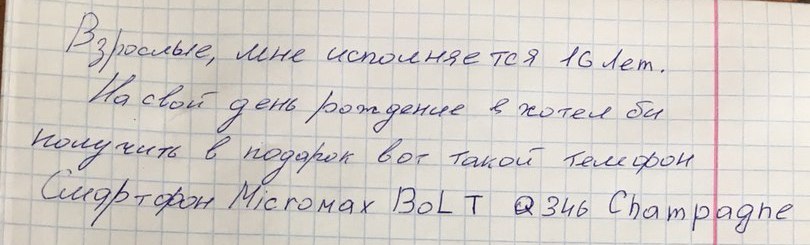 Взрослые, мне исполняется 16 лет.
На свой день рождение в хотел би
получить в подарок вот такой телефон
Смартфон Micromax BoLT Q346 Champagne